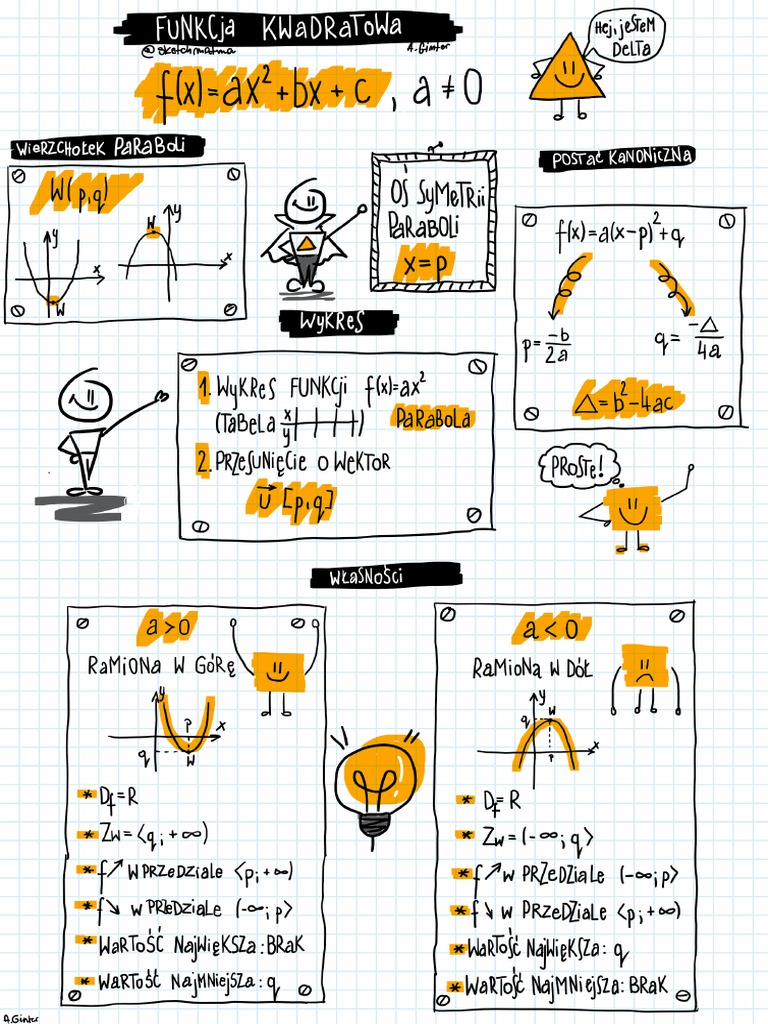 FUNKCJA KWADRATOWA
@sketchmatma
A. Ginter
f(x)=ax²+bx+c, a≠0
Hej, jestem
DELTA
WIERZCHOŁEK PARABOLI
W(p,q)
y
x
W
W
y
x
OŚ SYMETRII
PARABOLI
x=p
POSTAĆ KANONICZNA
f(x)=a(x-p)²+q
p=-b/2a
q=-△/4a
△=b²-4ac
WYKRES
1. WYKRES FUNKCJI f(x)=ax²
(TABELA x/y) PARABOLA
2. PRZESUNIĘCIE O WEKTOR
u→ [p,q]
PROSTE!
WŁASNOŚCI
a>0
RAMIONA W GÓRĘ
y
P
x
q
W
* Df=R
* Zw=⟨q;+∞)
* f↗ W PRZEDZIALE ⟨p;+∞)
* f↘ W PRZEDZIALE (-∞;p⟩
* WARTOŚĆ NAJWIĘKSZA: BRAK
* WARTOŚĆ NAJMNIEJSZA: q
a<0
RAMIONA W DÓŁ
y
q
W
P
x
* Df=R
* Zw=(-∞;q⟩
* f↗ W PRZEDZIALE (-∞;p⟩
* f↘ W PRZEDZIALE ⟨p;+∞)
* WARTOŚĆ NAJWIĘKSZA: q
* WARTOŚĆ NAJMNIEJSZA: BRAK
A.Ginter